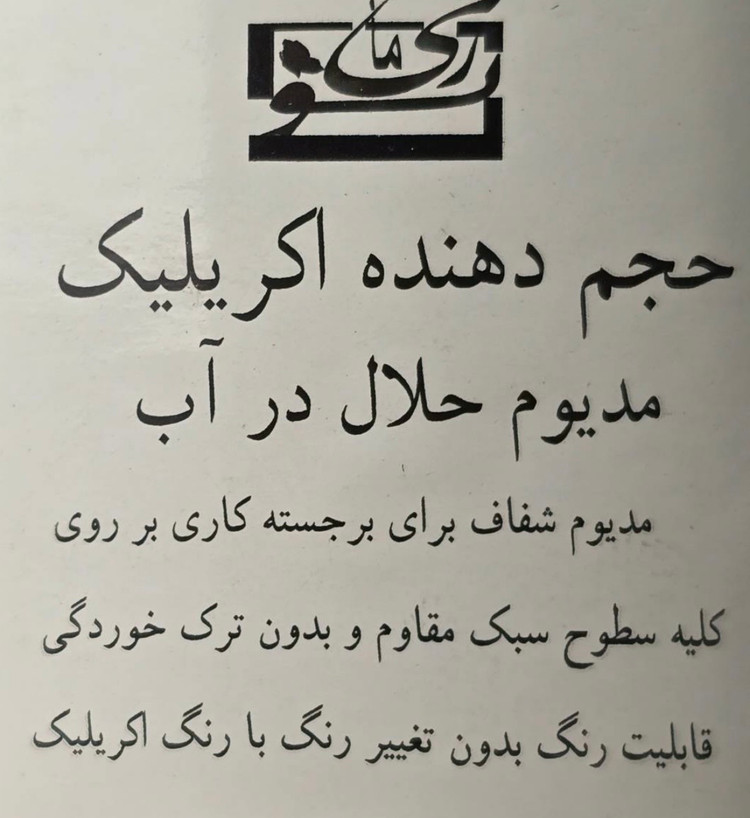 حجم دهنده اکریلیک
مدیوم حلال در آب
مدیوم شفاف برای برجسته کاری بر روی
کلیه سطوح سبک مقاوم و بدون ترک خوردگی
قابلیت رنگ بدون تغییر رنگ با رنگ اکریلیک